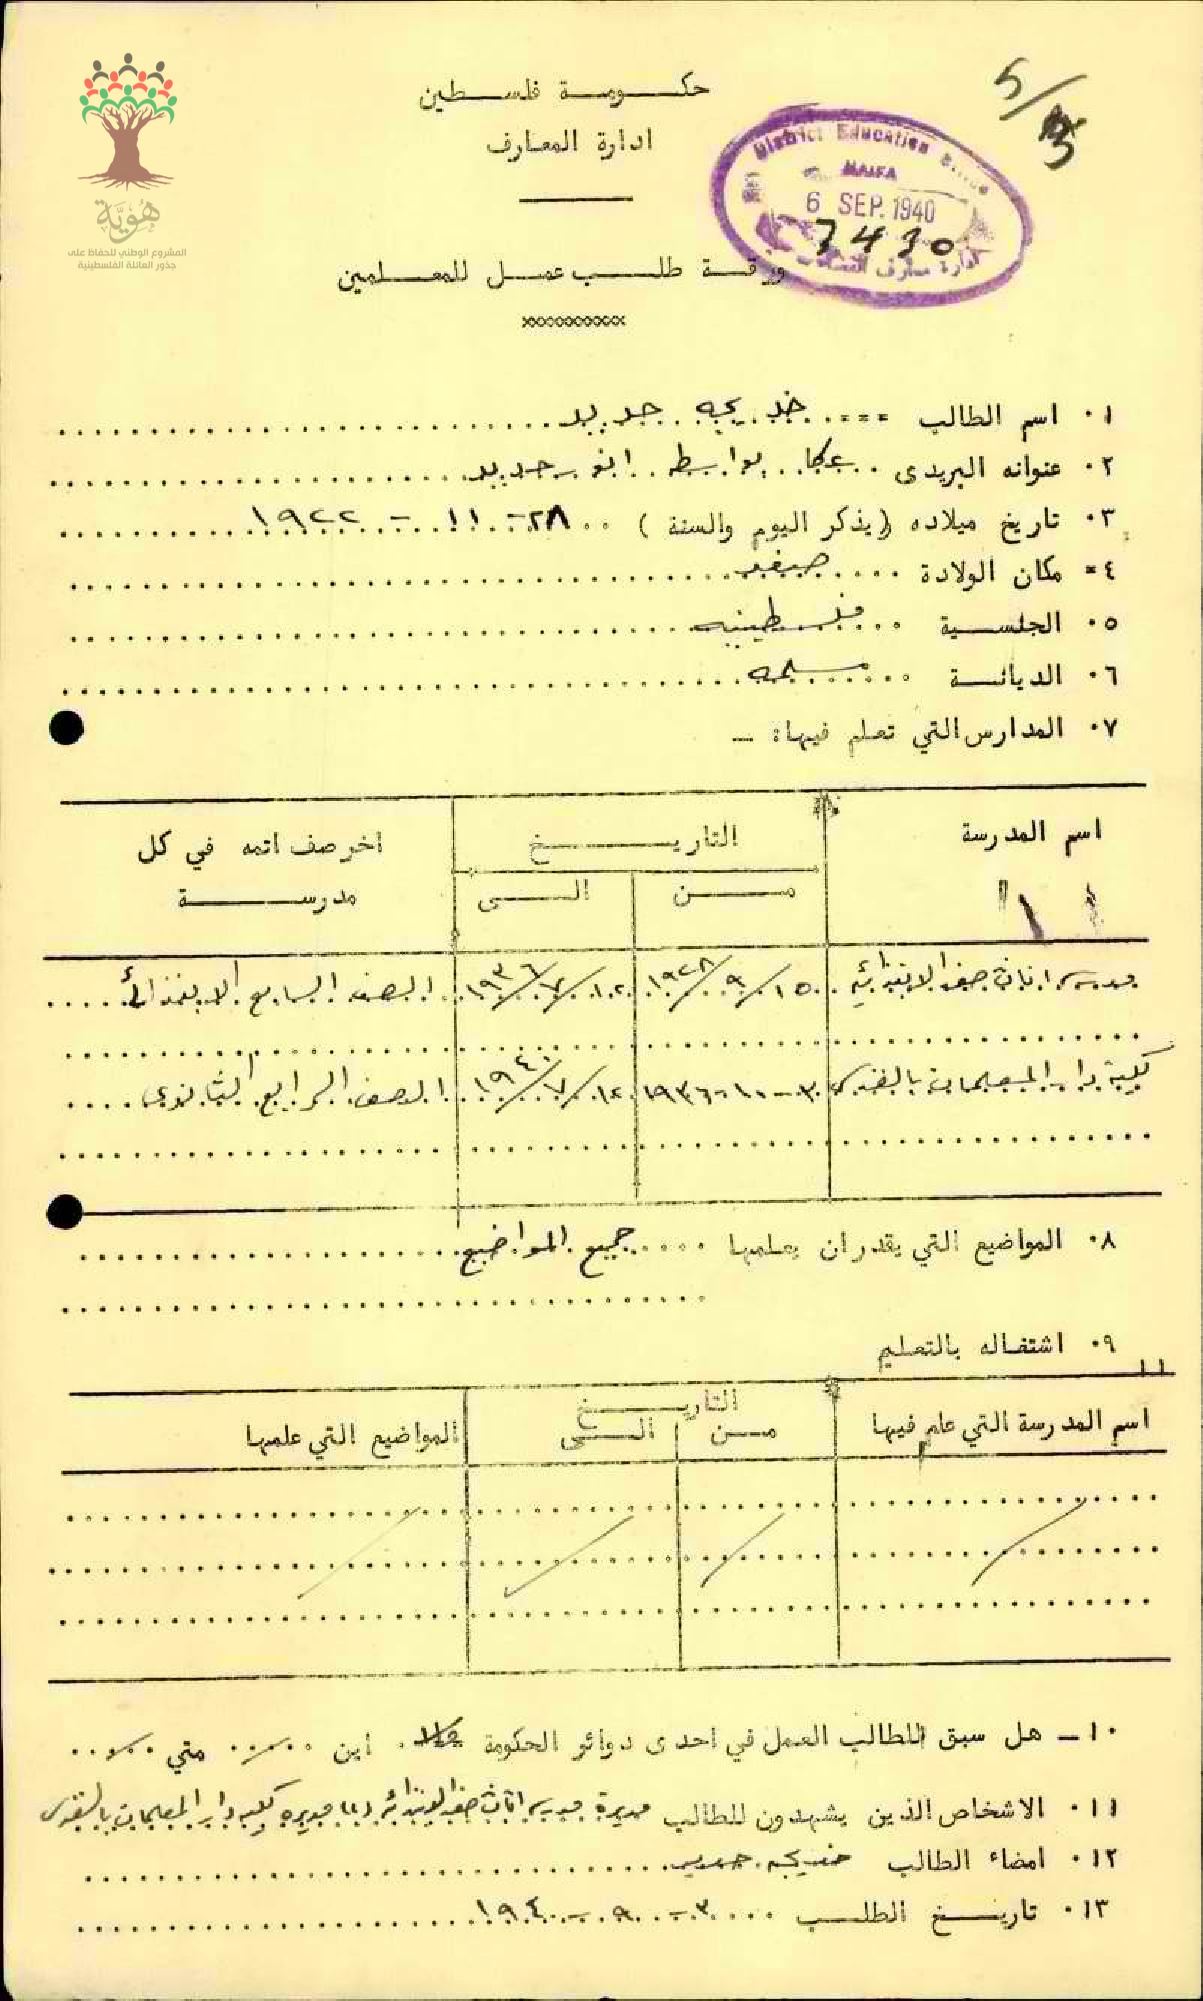 هُوِيَّة
المشروع الوطني للحفاظ على
جذور العائلة الفلسطينية
5/3
حكومة فلسطين
ادارة المعارف
District Education Office
HAIFA
6 SEP. 1940
7430
ادارة معارف
ورقة طلب عمل للمعلمين
xxxxxxxxxxx
١٠ اسم الطالب ==.. خديجه جديد
٢٠ عنوانه البريدى .. عكا بواسطه انو جديد
٣٠ تاريخ ميلاده (يذكر اليوم والسنة) .. ٢٨ - ١١ - ١٩٢٢
٤= مكان الولادة .... صفد
٥٠ الجلسية ... فلسطينيه
٦٠ الديانة .... مسلمه
٧٠ المدارس التي تعلم فيها: ــ
اسم المدرسة التاريخ اخر صف اتمه في كل مدرسة
من الى
مدرسة اناث صفد الابتدائيه ١٥/٩/١٩٢٨ ١٢/٧/١٩٣٦ الصف السابع الابتدائي
كلية دار المعلمات بالقدس ٣-١٠-١٩٣٦ ١٢/٧/١٩٤٠ الصف الرابع الثانوي
٨٠ المواضيع التي يقدر ان يعلمها .... جميع المواضيع
٩٠ اشتغاله بالتعليم
اسم المدرسة التي علم فيها التاريخ المواضيع التي علمها
من الى
١٠ــ هل سبق للطالب العمل في احدى دوائر الحكومة كلا اين ... متي ...
١١٠ الاشخاص الذين يشهدون للطالب مديرة مدرسة اناث صفد الابتدائيه (٢) مديرة كلية دار المعلمات بالقدس
١٢٠ امضاء الطالب خديجه جديد
١٣٠ تاريخ الطلب .... ٣ - ٩ - ١٩٤٠